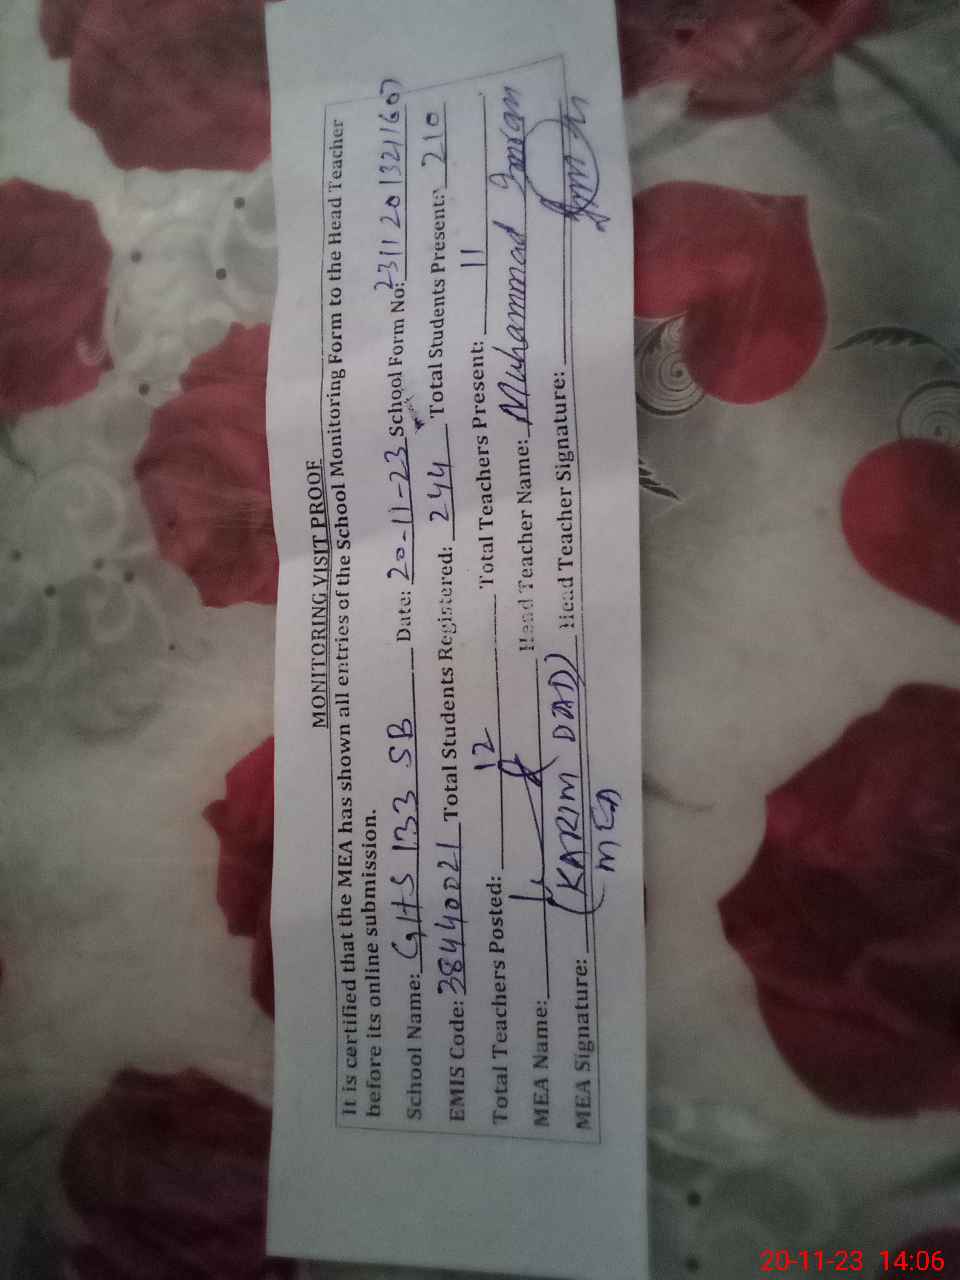 MONITORING VISIT PROOF
It is certified that the MEA has shown all entries of the School Monitoring Form to the Head Teacher
before its online submission.
School Name: GHS 133 SB Date: 20-11-23 School Form No: 23112013211607
EMIS Code: 38440021 Total Students Registered: 244 Total Students Present: 210
Total Teachers Posted: 12 Total Teachers Present: 11
MEA Name: Head Teacher Name: Muhammad Imran
MEA Signature: (KARIM DAD) Head Teacher Signature:
MEA
20-11-23 14:06